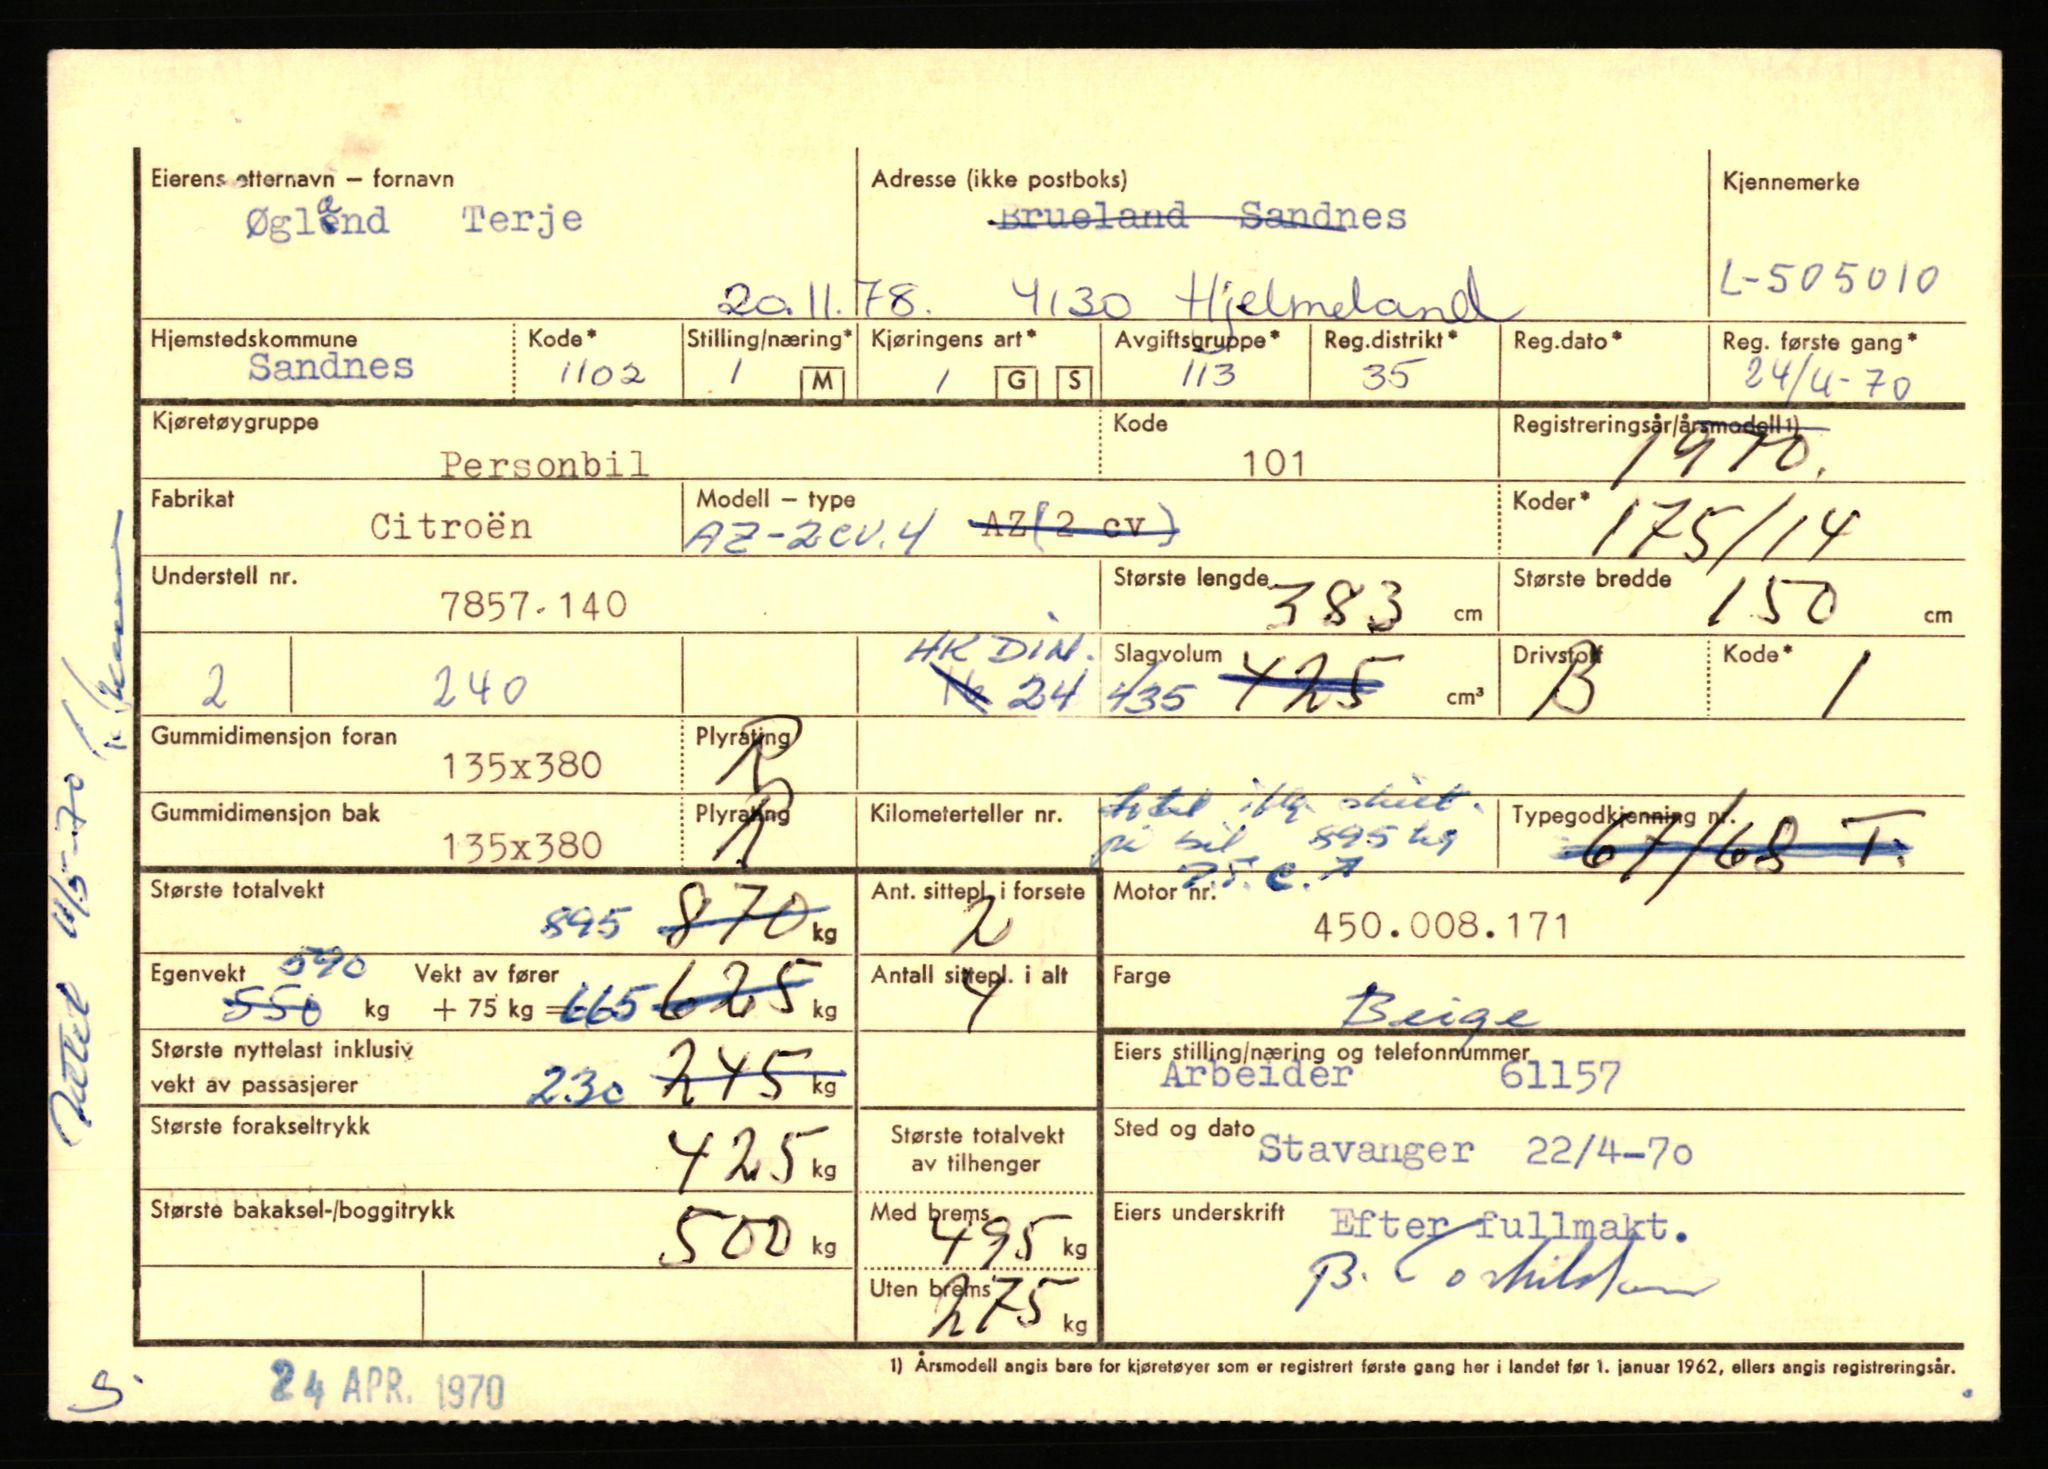 Eierens etternavn – fornavn
Øgland Terje
Adresse (ikke postboks)
Brueland Sandnes
20.11.78. 4130 Hjelmeland
Kjennemerke
L-505010
Hjemstedskommune
Sandnes
Kode*
1102
Stilling/næring*
1 M
Kjøringens art*
1 G S
Avgiftsgruppe*
113
Reg.distrikt*
35
Reg.dato*
Reg. første gang*
24/4-70
Kjøretøygruppe
Personbil
Kode
101
Registreringsår/årsmodell 1)
1970.
Fabrikat
Citroën
Modell – type
AZ-2CV.4 AZ(2 cv)
Koder*
175/14
Understell nr.
7857.140
Største lengde
383 cm
Største bredde
150 cm
2 240
HK DIN.
24
Slagvolum
435 425 cm³
Drivstoff
B
Kode*
1
Gummidimensjon foran
135x380
Plyrating
R
Gummidimensjon bak
135x380
Plyrating
R
Kilometerteller nr.
total
på bil 895 kg
Typegodkjenning nr.
67/68 T.
Største totalvekt
895 870 kg
Ant. sittepl. i forsete
2
Motor nr.
450.008.171
Egenvekt 590
550 kg
Vekt av fører
+ 75 kg = 665 625 kg
Antall sittepl. i alt
4
Farge
Beige
Største nyttelast inklusiv
vekt av passasjerer
230 245 kg
Eiers stilling/næring og telefonnummer
Arbeider 61157
Største forakseltrykk
425 kg
Største totalvekt
av tilhenger
Sted og dato
Stavanger 22/4-70
Største bakaksel-/boggitrykk
500 kg
Med brems
495 kg
Uten brems
275 kg
Eiers underskrift
Efter fullmakt.
B.
1) Årsmodell angis bare for kjøretøyer som er registrert første gang her i landet før 1. januar 1962, ellers angis registreringsår.
24 APR. 1970
S.
11/5-70